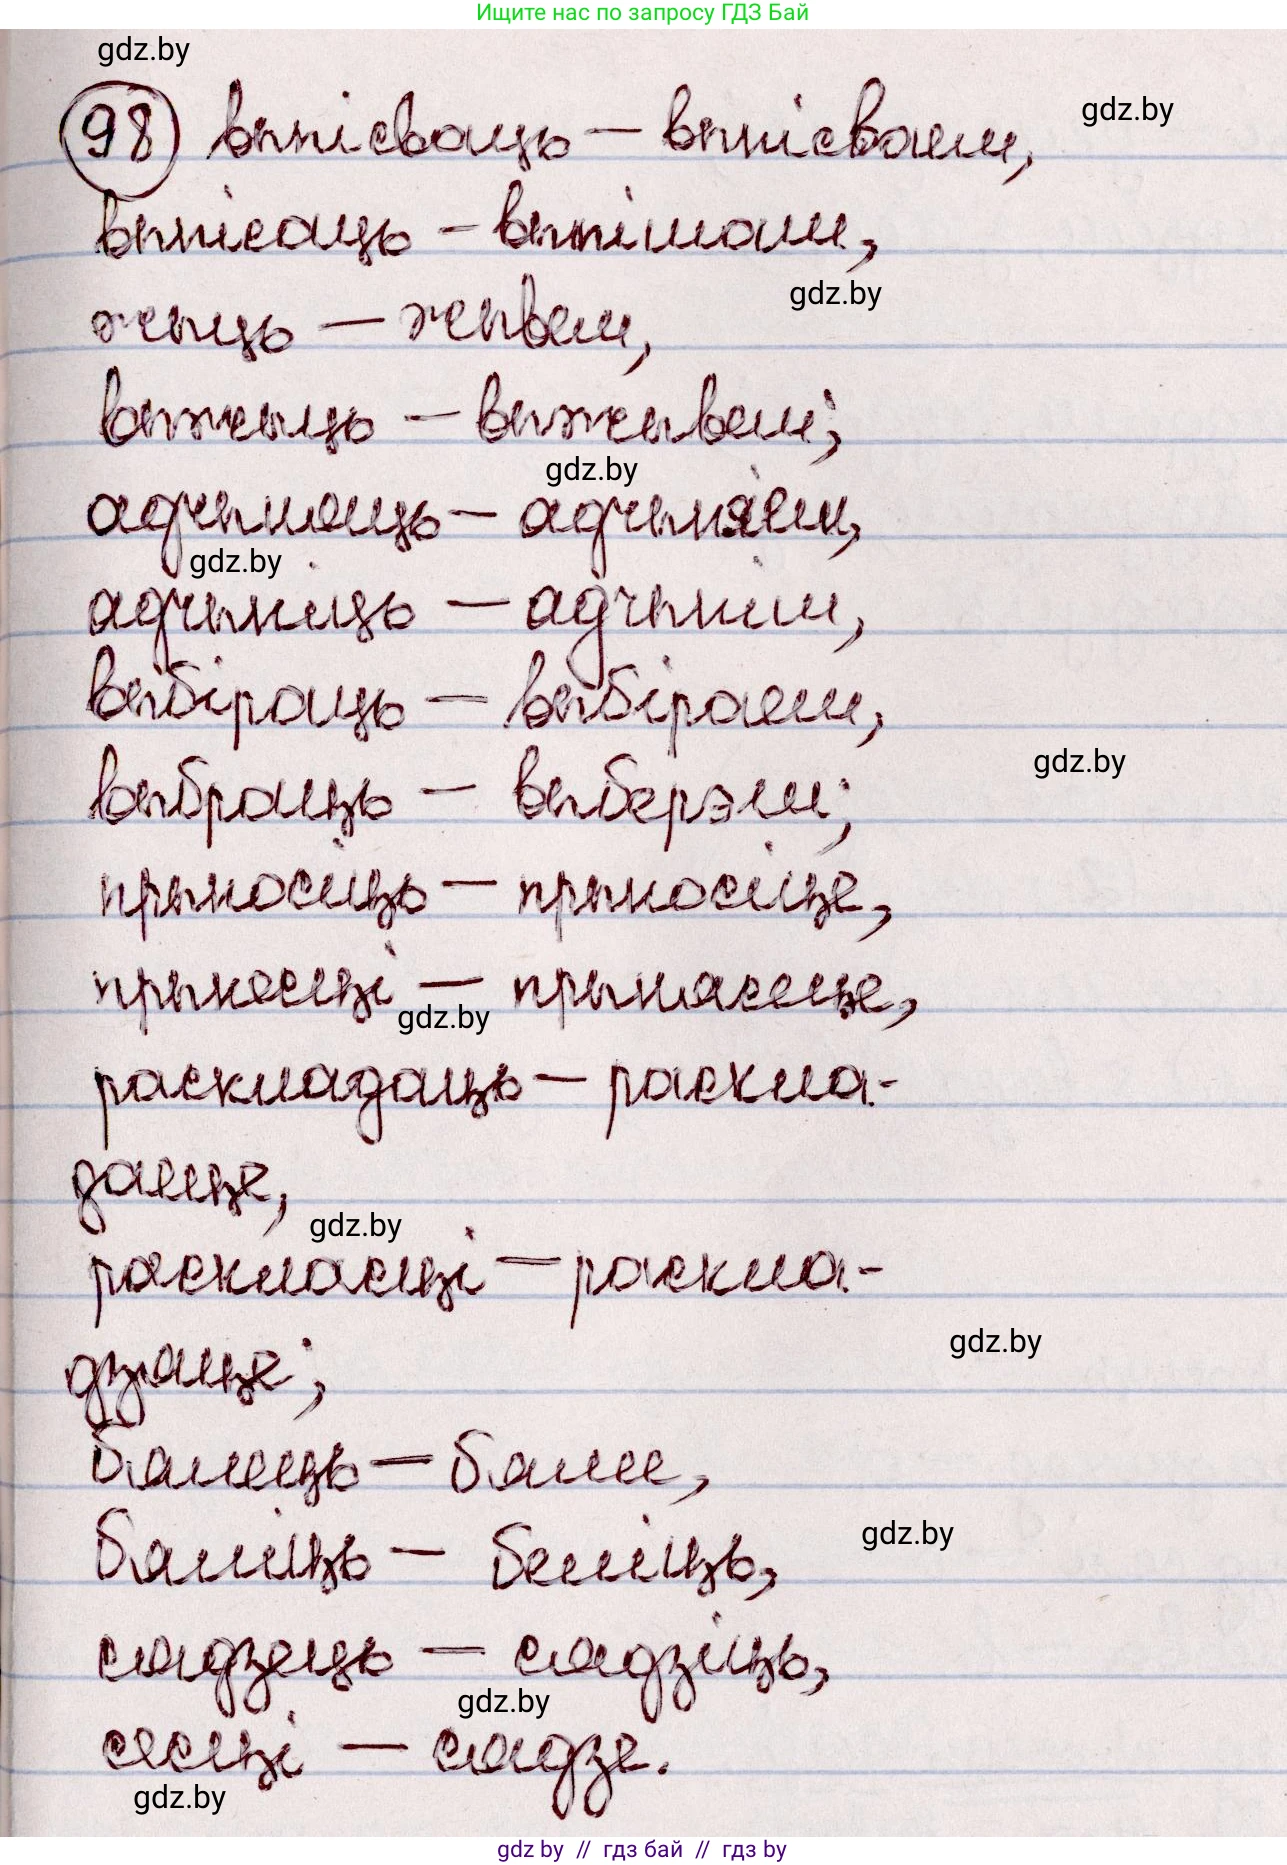 Ищите нас по запросу ГДЗ Бай
gdz.by
98 выпісваць – выпісваеш,
gdz.by
выпісаць – выпішаш,
gdz.by
жыць – жывеш,
выжыць – выжывеш;
gdz.by
адчыняць – адчыняеш,
gdz.by
адчыніць – адчыніш,
выбіраць – выбіраеш,
gdz.by
выбраць – выберэш;
прыносіць – прыносіце,
прынесці – прынясеце,
gdz.by
раскладаць – раскла-
даеце,
gdz.by
раскласці – раскла-
gdz.by
дзяце;
бялець – бялее,
gdz.by
бяліць – беліць,
сядзець – сядзіць,
gdz.by
сесці – сядзе.
gdz.by
gdz by // гдз бай // гдз by